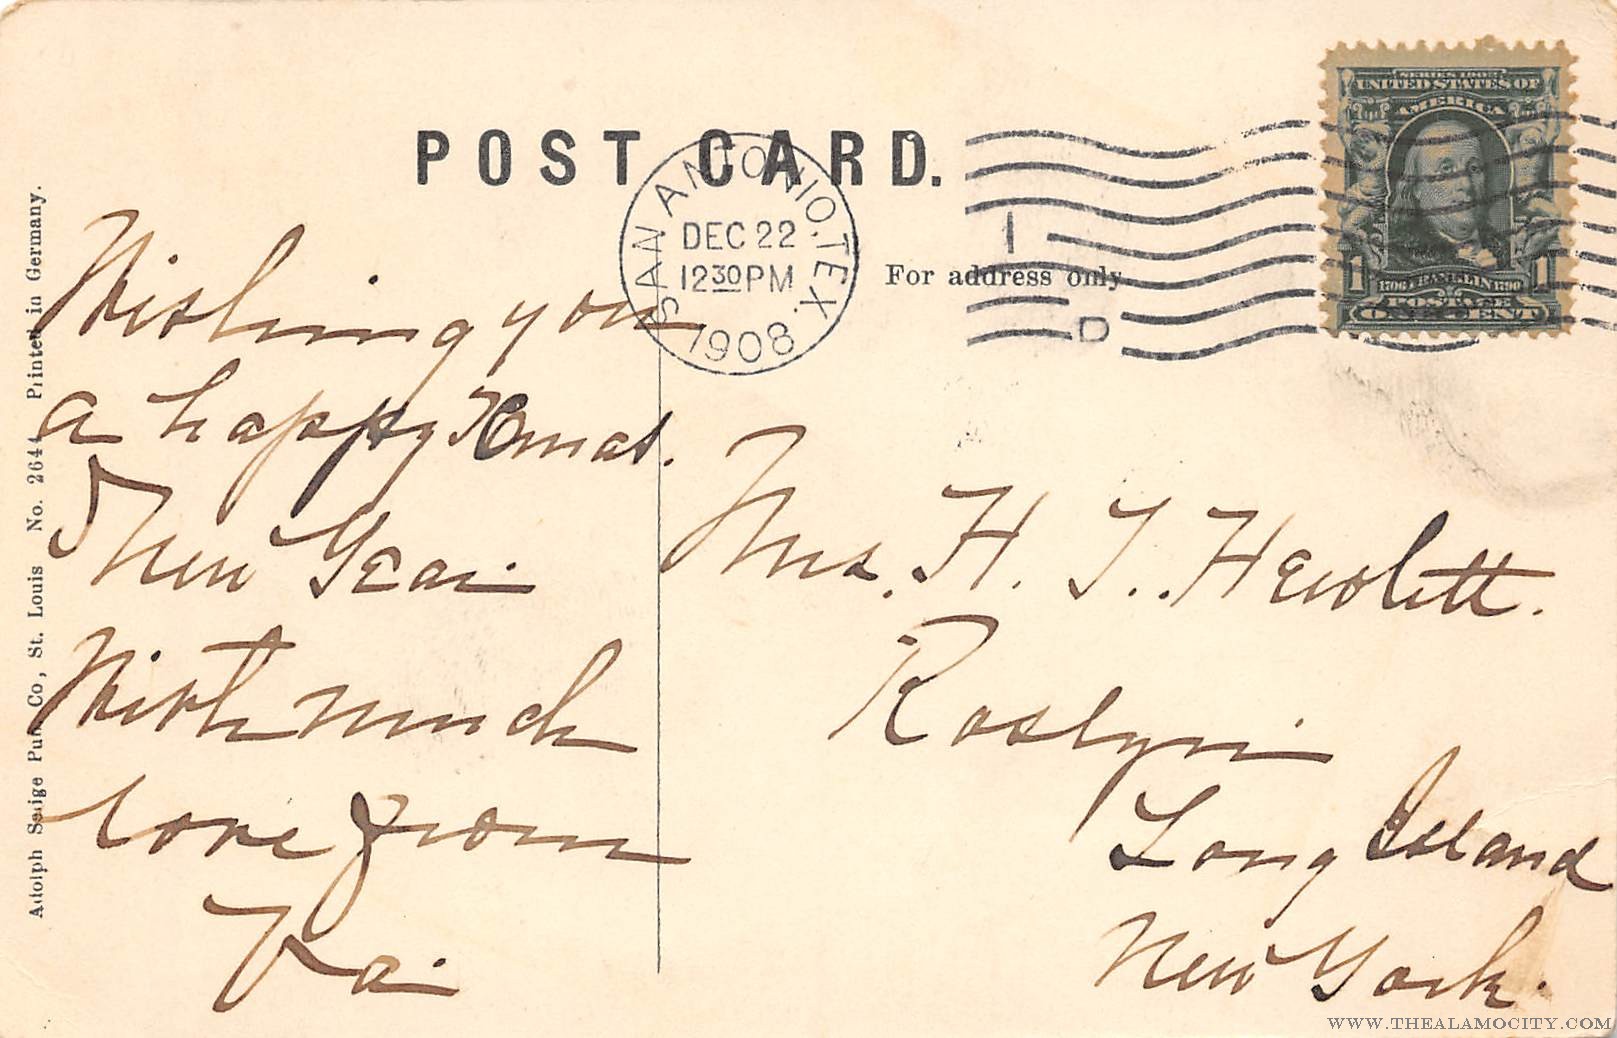 POST CARD.
SAN ANTONIO, TEX.
DEC 22
12 30 PM
1908.
1
D
For address only
SERIES 1902
UNITED STATES OF
AMERICA
1 1706 FRANKLIN 1790 1
POSTAGE
ONE CENT
Wishing you
a happy Xmas.
New Year
With much
love from
Mrs. H. T. Hewlett.
Roslyn
Long Island
New York.
Adolph Selige Pub. Co, St. Louis No. 2644 Printed in Germany.
WWW.THEALAMOCITY.COM